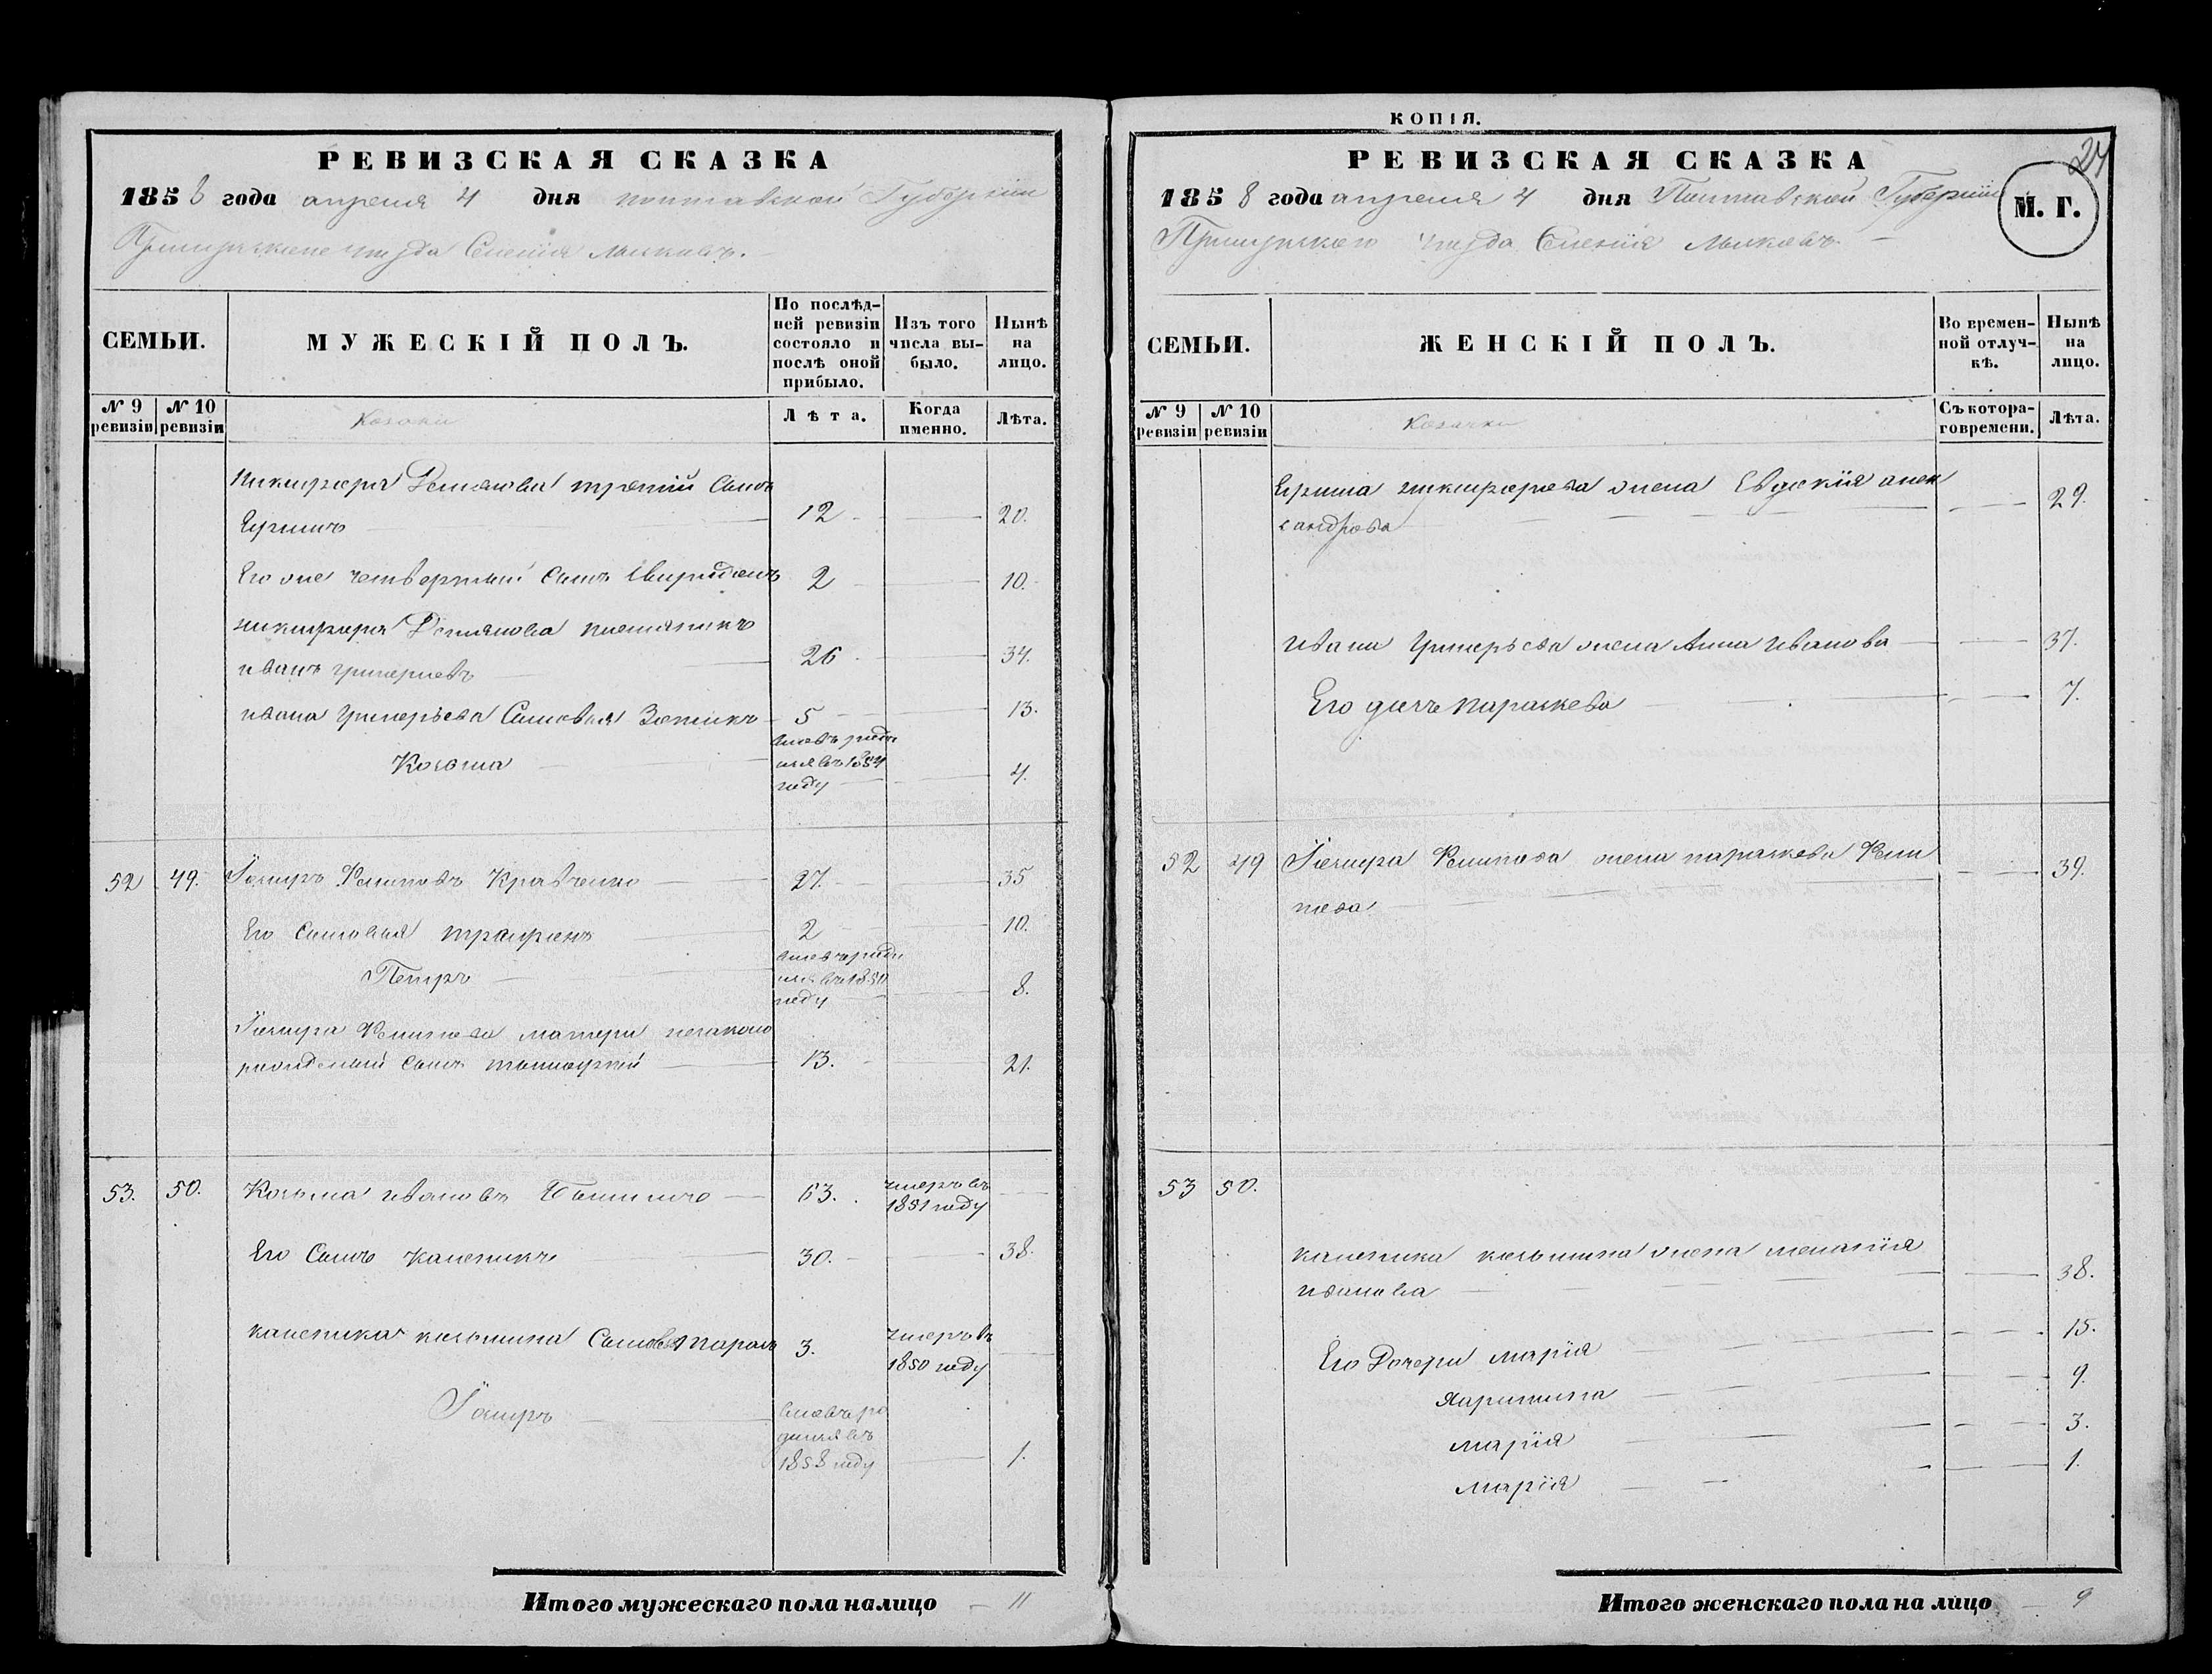 РЕВИЗСКАЯ СКАЗКА
1858 года апреля 4 дня Полтавской Губернии
Прилуцкаго уезда Селенія Мильковъ.
СЕМЬИ.
МУЖЕСКІЙ ПОЛЪ.
По послѣд-
ней ревизіи
состояло и
послѣ оной
прибыло.
Изъ того
числа вы-
было.
Нынѣ
на
лицо.
№ 9
ревизіи
№ 10
ревизіи
Козаки
Лѣта.
Когда
именно.
Лѣта.
никифора Демянова третій Сынъ
12 20.
Его же четвертый Сынъ Свиридонъ 2 10.
никифора Демянова племяникъ
иванъ григориевъ 26 34.
ивана григорьева Сыновья Зотикъ 5 13.
Козьма
вновь роди
лся въ 1854
году 4.
52 49. Филиповъ Кравченко 27. 35
Его Сыновья трифонъ 2 10.
Петръ
вновь роди
лся въ 1850
году 8.
Филипова матери незаконо
рожденый Сынъ тимофей 13. 21.
53. 50. Козьма ивановъ 63. умеръ въ
1851 году
Его Сынъ каленикъ 30. 38.
каленика козьмина Сыновья тарасъ 3. умеръ въ
1850 году
вновь ро
дился въ
1858 году 1.
Итого мужескаго пола налицо 11
КОПІЯ.
24
РЕВИЗСКАЯ СКАЗКА
1858 года апреля 4 дня Полтавской Губерніи
М. Г.
Прилуцкаго уезда Селенія Мильковъ
СЕМЬИ.
ЖЕНСКІЙ ПОЛЪ.
Во времен-
ной отлуч-
кѣ.
Нынѣ
на
лицо.
№ 9
ревизіи
№ 10
ревизіи
Козачки
Съ котора-
го времени.
Лѣта.
никифорова жена Евдокія алек
сандрова 29.
ивана григорьева жена Анна иванова 37.
Его дочь параскева 7.
52 49 Филипова жена параскева Фили
пова 39.
53 50.
каленика козьмина жена меланія
иванова 38.
Его Дочери марія 15.
9.
марія 3.
марія 1.
Итого женскаго пола на лицо 9